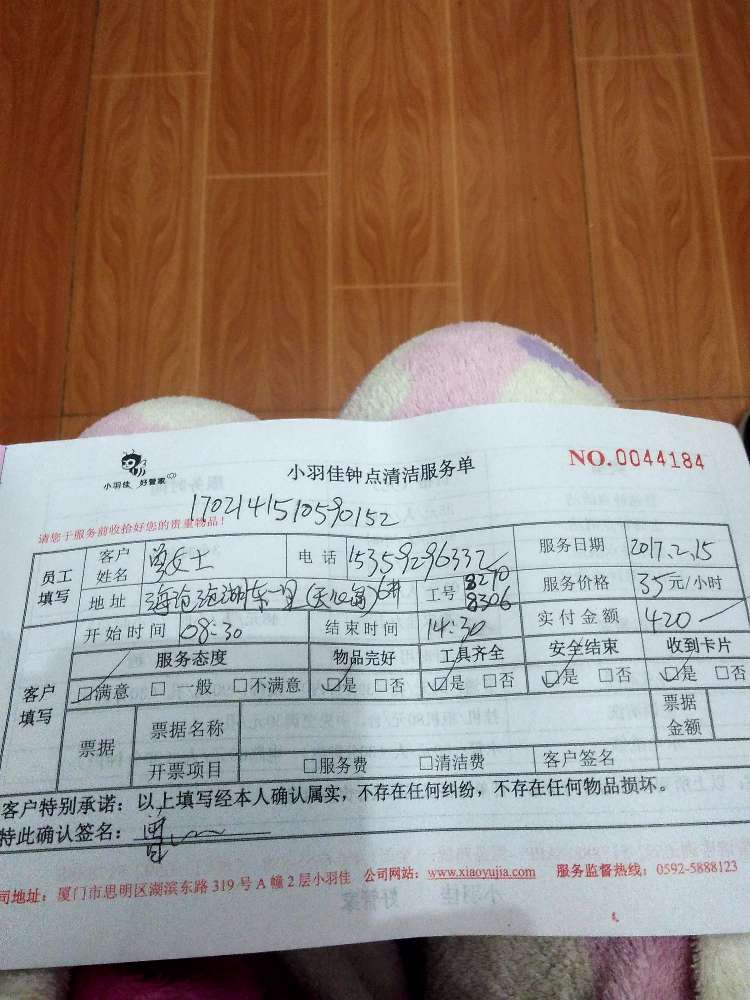 小羽佳 好管家
小羽佳钟点清洁服务单
NO.0044184
1702141510590152
请您于服务前收拾好您的贵重物品!
员工填写 客户姓名 曾女士 电话 15359296332 服务日期 2017.2.15
地址 海沧沧湖东一里 工号 8270 8306 服务价格 35元/小时
开始时间 08:30 结束时间 14:30 实付金额 420
客户填写 服务态度 物品完好 工具齐全 安全结束 收到卡片
☑满意 □一般 □不满意 ☑是 □否 ☑是 □否 ☑是 □否 ☑是 □否
票据 票据名称 票据金额
开票项目 □服务费 □清洁费 客户签名
客户特别承诺：以上填写经本人确认属实，不存在任何纠纷，不存在任何物品损坏。
特此确认签名：曾
司地址：厦门市思明区湖滨东路 319 号 A 幢 2 层小羽佳 公司网站：www.xiaoyujia.com 服务监督热线：0592-5888123